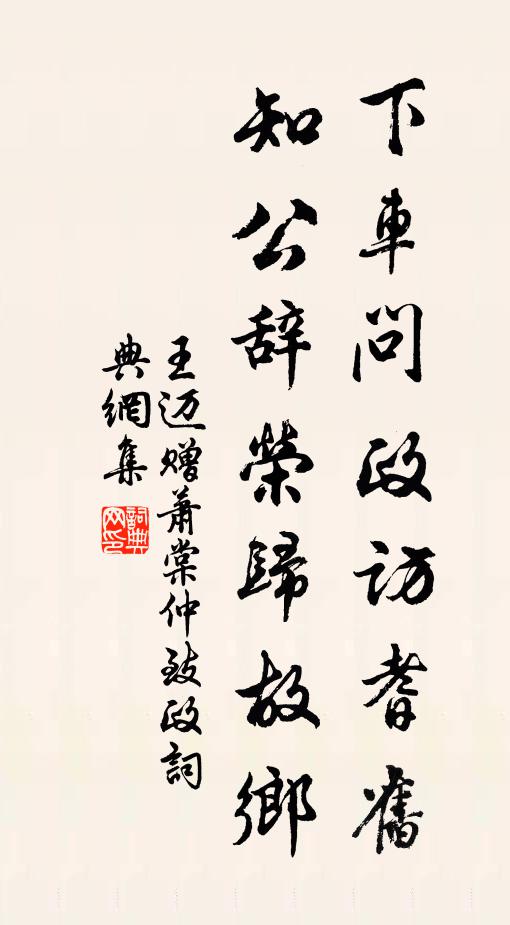 下車問政訪耆舊
知公辞榮歸故鄉
王迈赠萧棠仲致政詞
典網集
詞典
网印